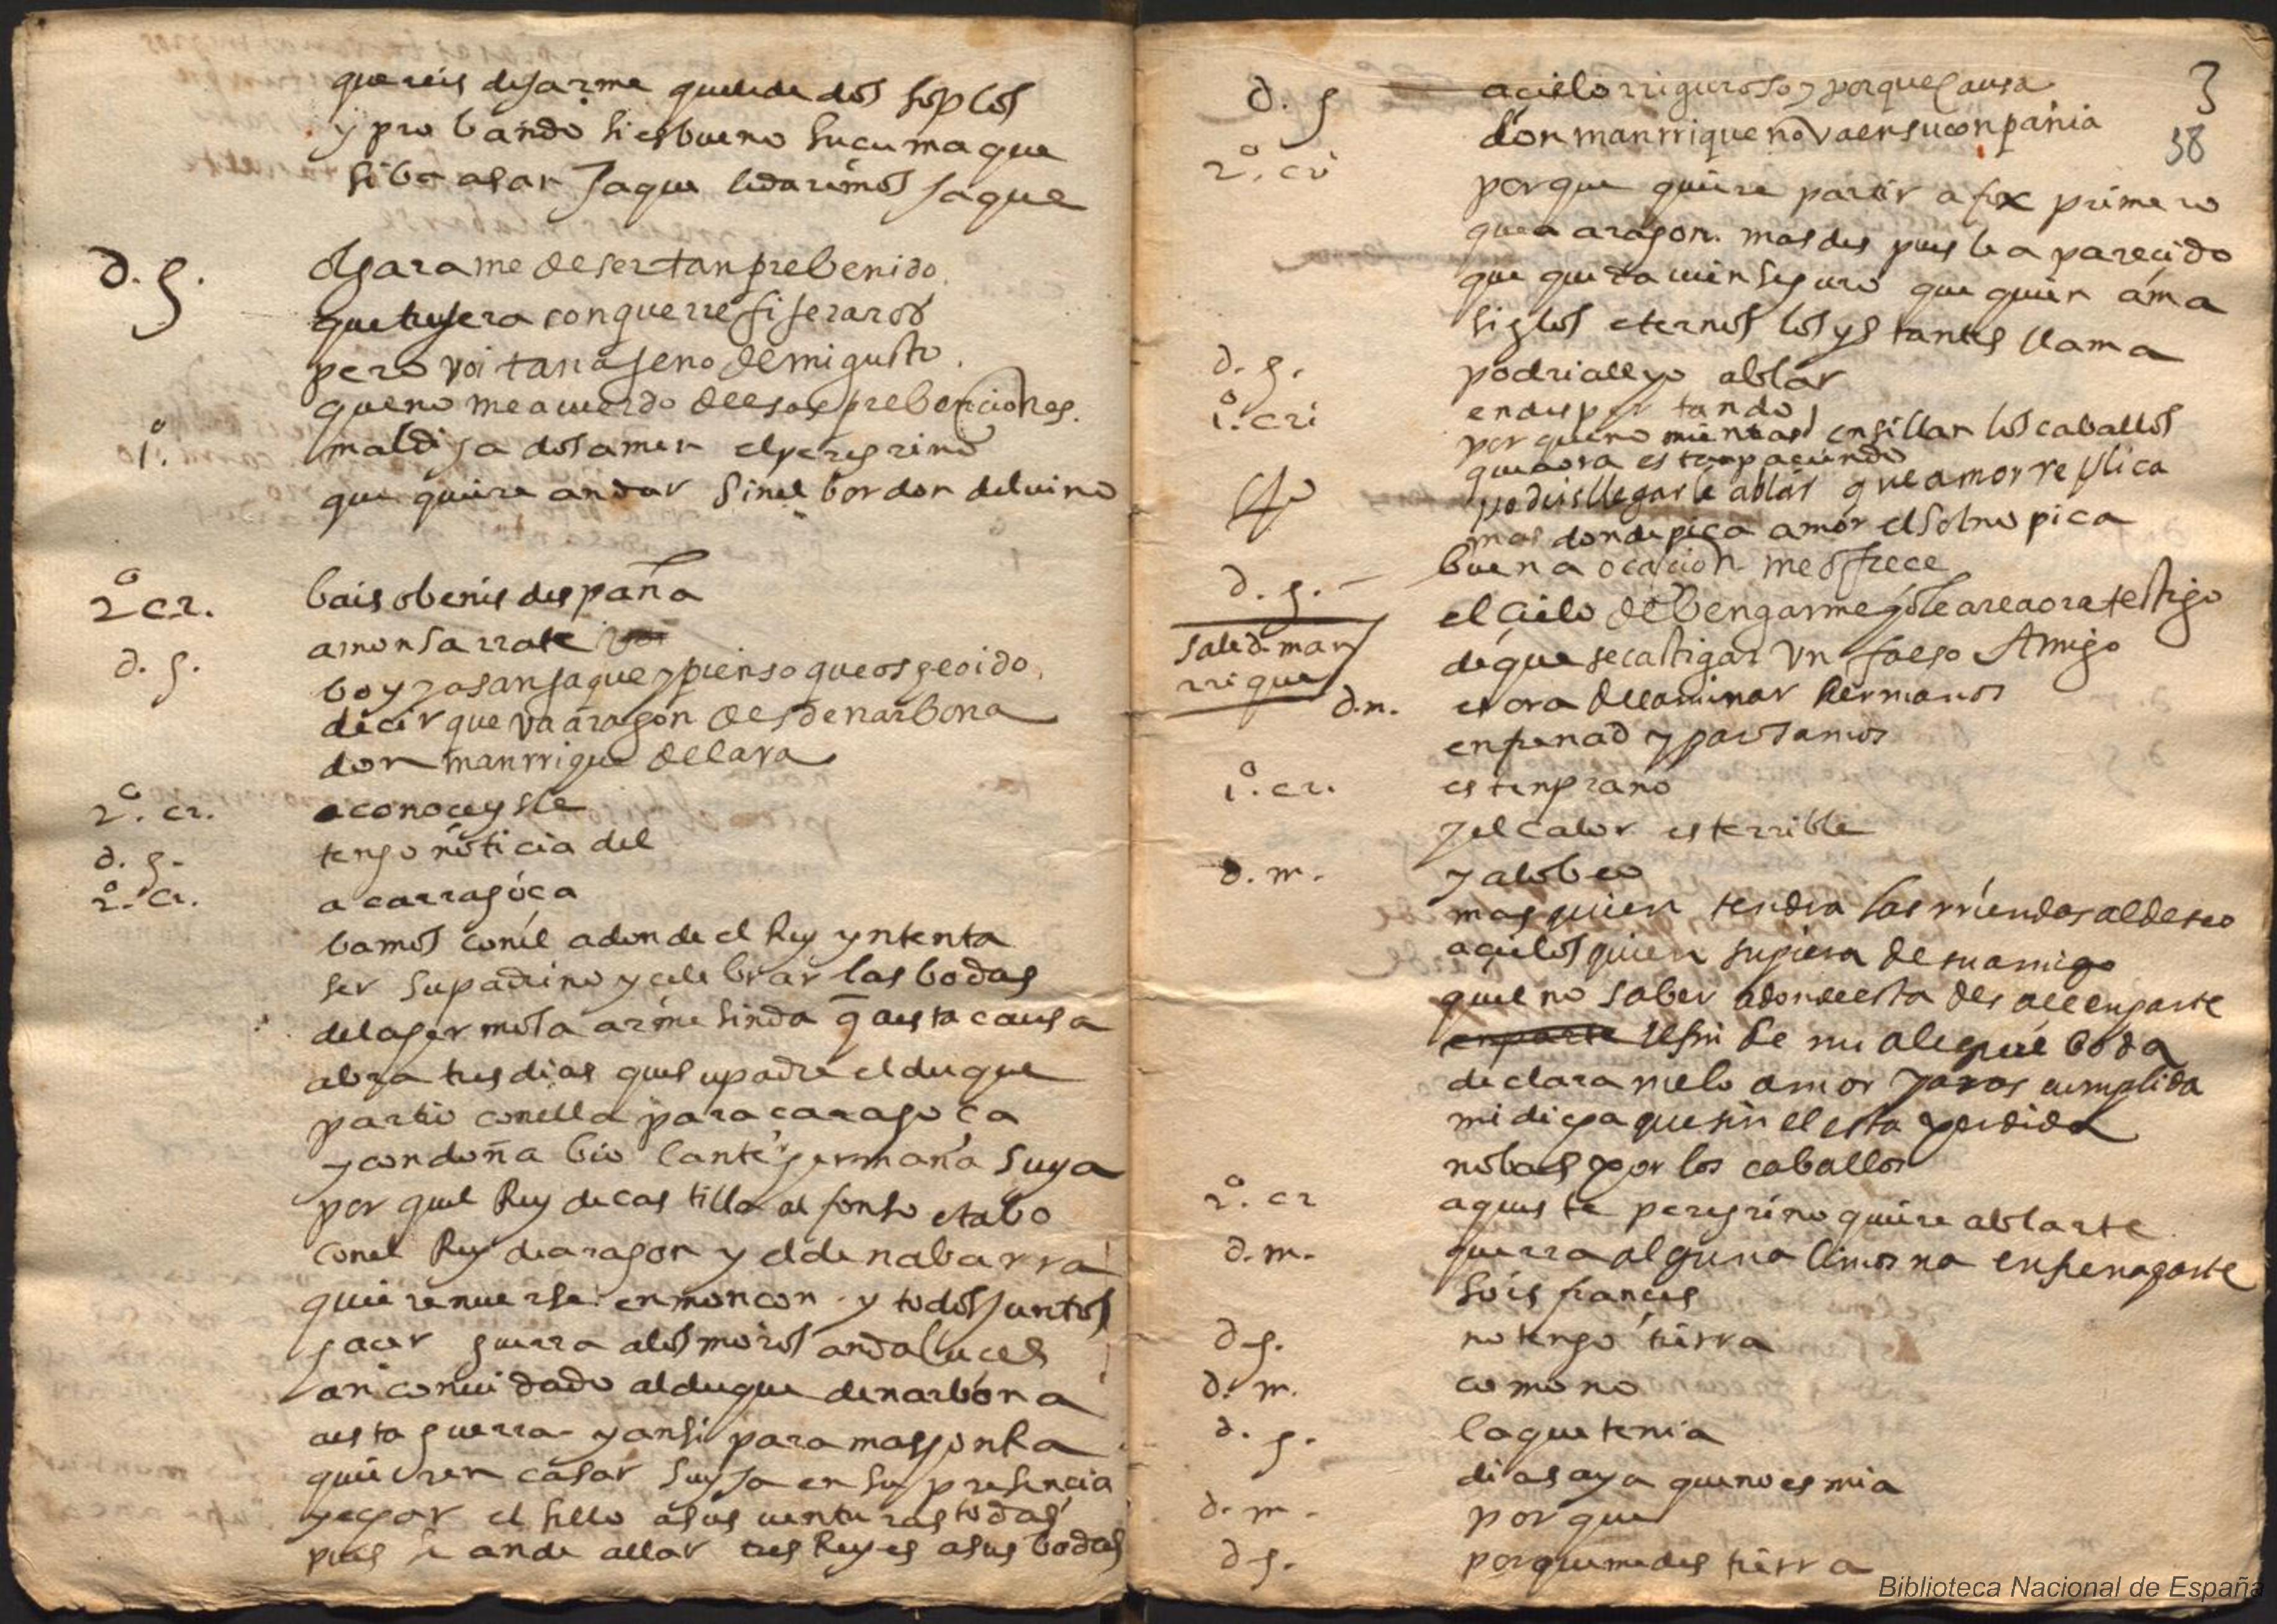 quereis dejarme quelede dos soplos
y probando si es bueno sucumaque
si ba asan jaque ledaremos jaque
d. g. olgarame de ser tan prebenido
que trujera con que rrefijeraros
pero voi tan ajeno de mi gusto
que no me acuerdo de esas prebenciones.
1º. maldija dosamen el peregrino
que quiere andar sin el bordon del vino
2º cr. bais obenis despaña
d. g. amonsarrate
boy ya san jaque y pienso que os e oido
decir que va aragon desde narbona
don manrrique de lara
2º. cr. aconoceysle
d. g. tengo noticia del
2º. cr. a çarragoça
bamos con el adonde el Rey yntenta
ser su padrino y celebrar las bodas
de la germosa armesinda q̄ aesta causa
abra tres dias que su padre el duque
partio con ella para çaragoça
y con doña biolante germana suya
por quel Rey de castilla alfonso otabo
conel Rey de aragon y el de nabarra
quiere nuerse en monçon y todos juntos
gacer guerra a los moros andaluces
an conuidado al duque de narbona
aesta guerra y ansi para mas gonRa
quieren casar su yja en su presencia
y egar el sello a sus uenturas todas
pues se an de allar tres Reyes a sus bodas
3
38
d. g. a cielo rriguroso y por que causa
don manrrique no va en su conpania
2º. cri porque quiere partir a fox primero
que a aragon. mas despues le a parecido
que que ta mien seguro que quien ama
siglos eternos los ystantes llama
d. g. podriale yo ablar
1º. cri en despertando
por que no mientras ensillan los caballos
que aora estan paciendo
podeis llegarle ablar que amor replica
mas donde pica amor el sol no pica
d. g. buena ocacion me ofrece
el cielo de bengarme y ole are aora testigo
sale d. manrrique
de que se castigar vn falso Amigo
d. m. es ora de caminar hermanos
enfrenad y partamos
1º. cr. es tenprano
y el calor es terrible
d. m. ya lo beo
mas quien tendra las rriendas al deseo
a cielos quien supiera de su amigo
que no saber adonde esta des
el fin de mi alegre boda
declara melo amor y aras cumplida
mi dicha que sin el esta perdida
no bas por los caballos
2º. cr aqueste peregrino quiere ablarte
d. m. querra alguna limosna
sois frances
d. g. no tengo tierra
d. m. como no
d. g. la que tenia
di as aya que no es mia
d. m. por que
d. g. porque me des tierra
Biblioteca Nacional de España